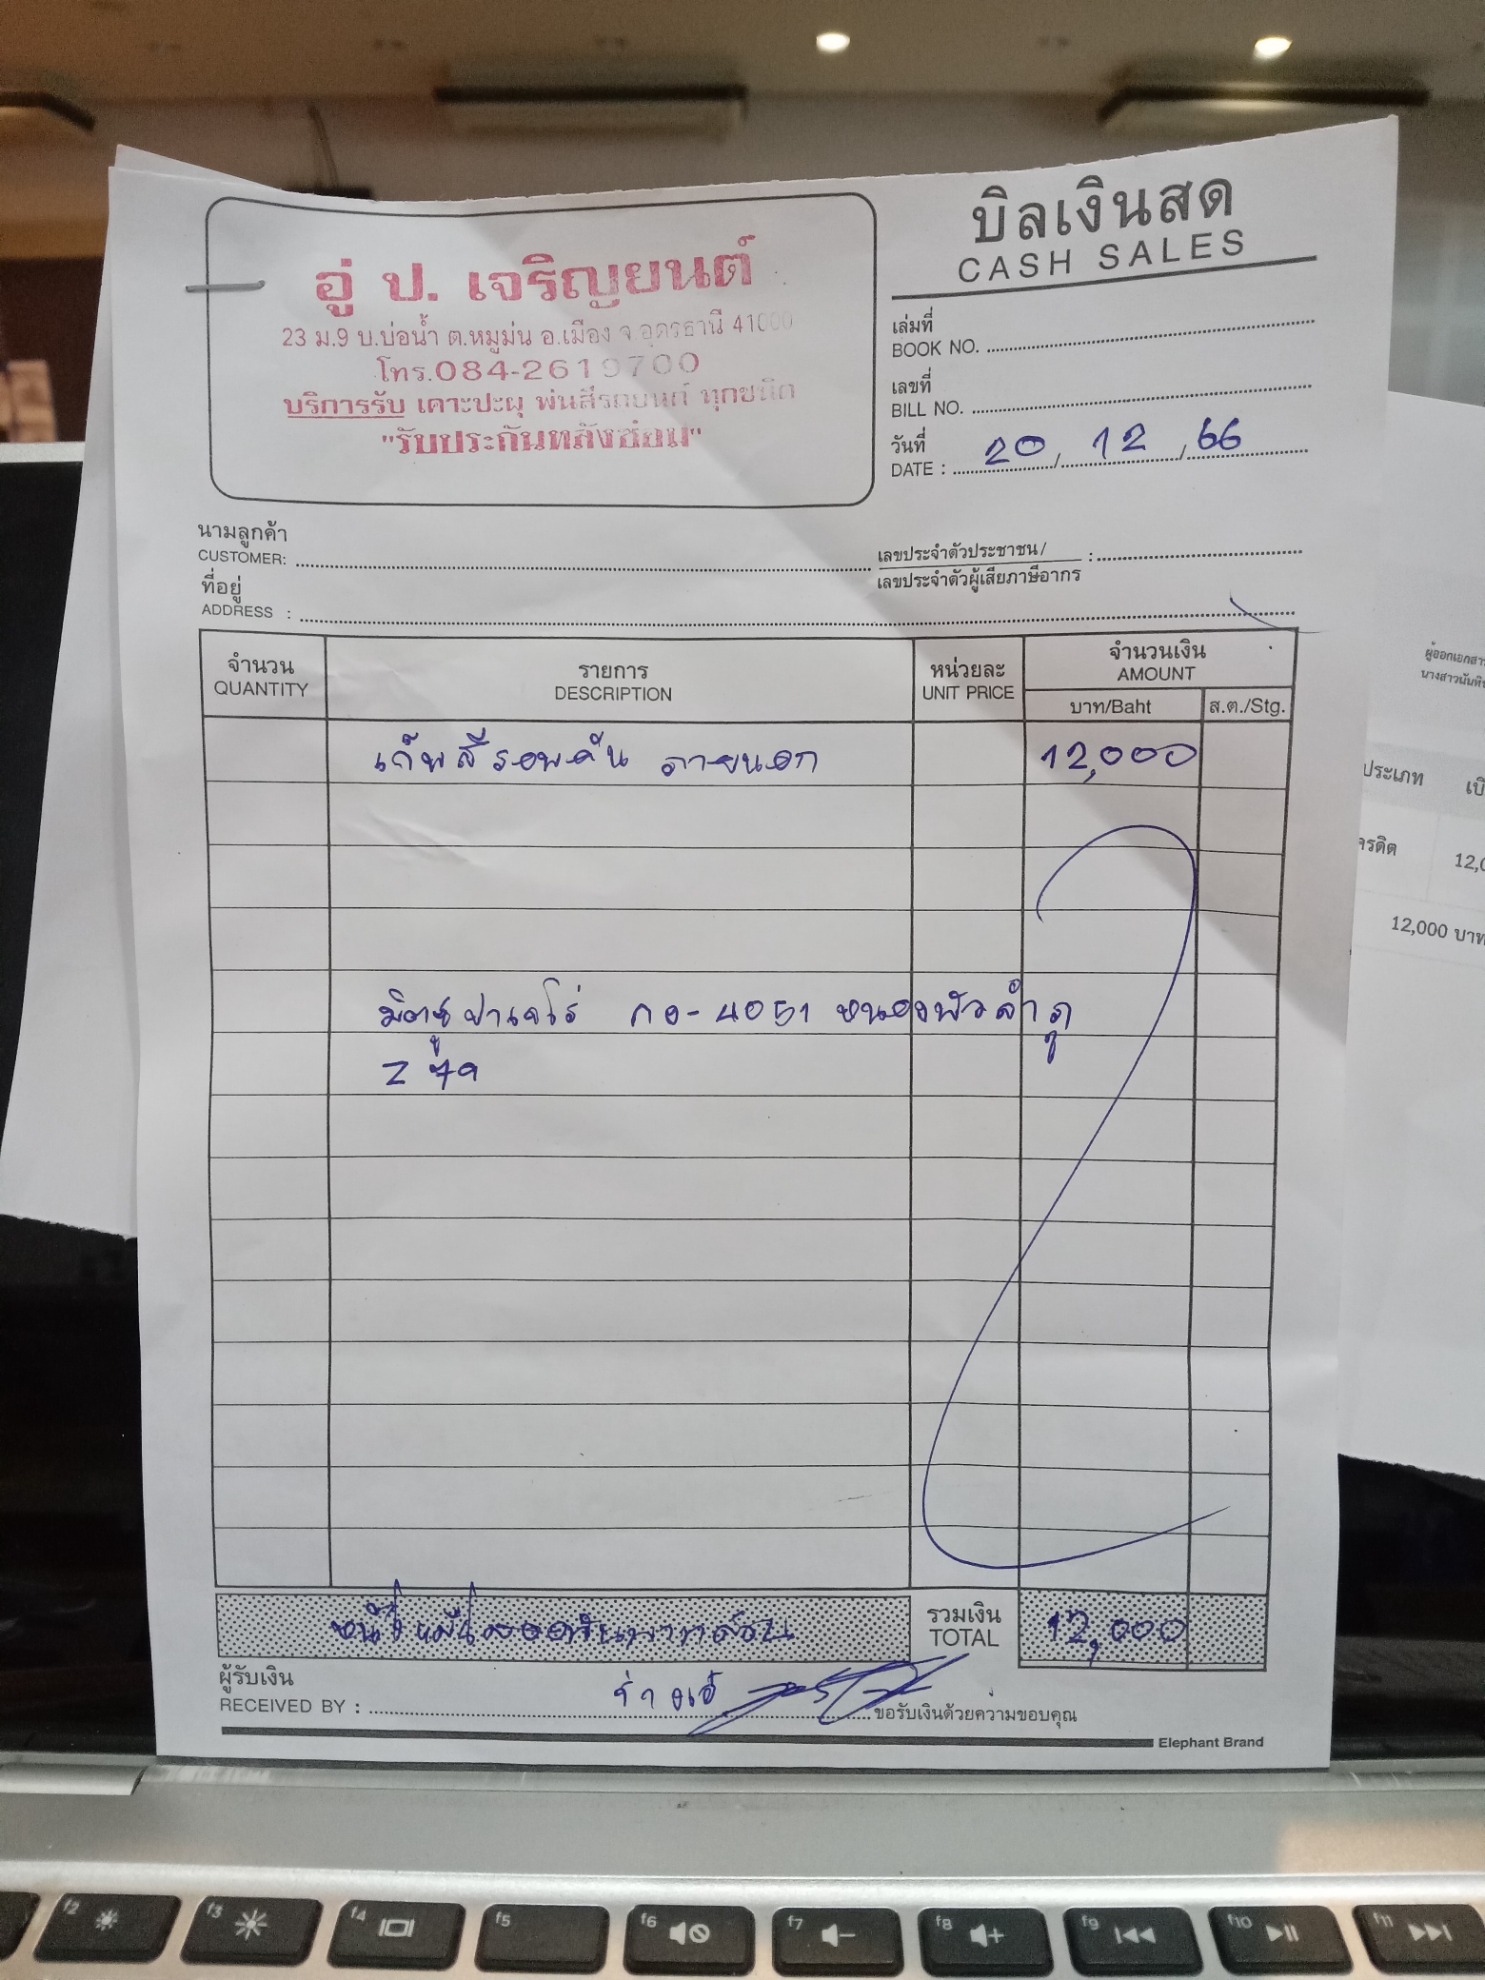 บิลเงินสด
CASH SALES
อู่ ป. เจริญยนต์
23 ม.9 บ.บ่อน้ำ ต.หมูม่น อ.เมือง จ.อุดรธานี 41000
โทร.084-2619700
บริการรับ เคาะปะผุ พ่นสีรถยนต์ ทุกชนิด
"รับประกันหลังซ่อม"
เล่มที่
BOOK NO.
เลขที่
BILL NO.
วันที่
DATE : 20 / 12 / 66
นามลูกค้า
CUSTOMER:
เลขประจำตัวประชาชน/ :
เลขประจำตัวผู้เสียภาษีอากร
ที่อยู่
ADDRESS :
จำนวน
QUANTITY
รายการ
DESCRIPTION
หน่วยละ
UNIT PRICE
จำนวนเงิน
AMOUNT
บาท/Baht
ส.ต./Stg.
เก็บสีรอบคัน ภายนอก 12,000
มิตซูปาเจโร่ กอ-4051 หนองบัวลำภู
หนึ่งหมื่นสองพันบาทถ้วน
รวมเงิน
TOTAL
12,000
ผู้รับเงิน
RECEIVED BY :
ขอรับเงินด้วยความขอบคุณ
Elephant Brand
ประเภท
12,000 บาท
f2
f3
f4
f5
f6
f7
f8
f9
f10
f11